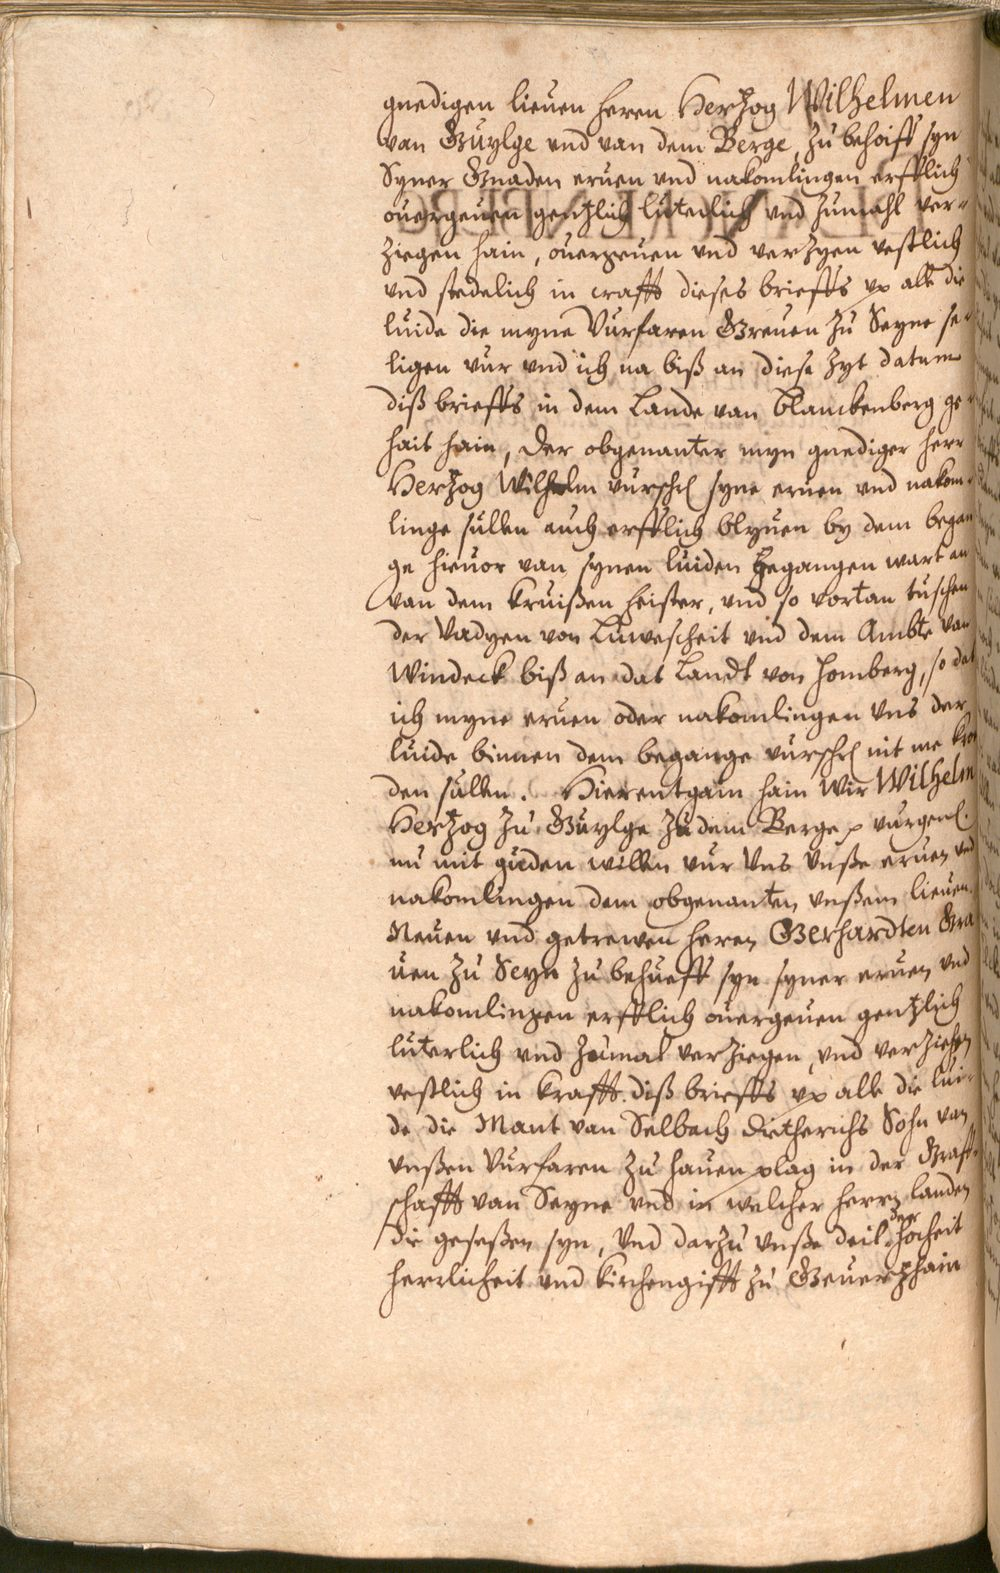 gnedigen lieuen herrn Hertzog Wilhelmen
van Guylge vnd van dem Berge, zu behoiff syn
Syner Gnaden eruen vnd nakomlingen erfflich
ouergeuen gentzlich luterlich vnd zumahl ver-
ziegen hain, ouergeuen vnd verzyen vestlich
vnd stedelich in crafft dieses brieffs vp alle die
luide die myne Vurfaren Greuen zu Seyne se-
ligen vur vnd ich na biß an diese zyt datum
diß brieffs in dem Lande van Blanckenberg ge-
hait hain, Der obgenanter myn gnediger herr
Hertzog Wilhelm vurschr syne eruen vnd nakom-
linge sullen auch erfflich blyuen by dem began
ge hieuor van synen luiden begangen wart an
van dem kruißen heister, vnd so vortan tuschen
der Vadyen von Luwescheit vnd dem Ambte van
Windeck biß an dat Landt von Homberg, so dat
ich myne eruen oder nakomlingen vns der
luide binnen dem begange vurschr nit me kro
den sullen. Hierentgain hain Wir Wilhelm
Hertzog zu Guylge zu dem Berge p vurgen.
nu mit guden willen vur Vns Vnße eruen vnd
nakomlingen dem obgenanten vnßem lieuen
Neuen vnd getrewen herrn Gerhardten Gra
uen zu Seyn zu behueff syn syner eruen vnd
nakomlingen erfflich ouergeuen gentzlich
luterlich vnd zumal verziegen, vnd verziehen
vestlich in krafft diß brieffs vp alle die lui-
de die Mant van Selbach Dietherichs Sohn van
vnßen Vurfaren zu hauen plag in der Graff-
schafft van Seyne vnd in welcher herrn landen
die geseßen syn, Vnd darzu vnße deil der hocheit
herrlicheit vnd kirchengifft zu Geuertzhain